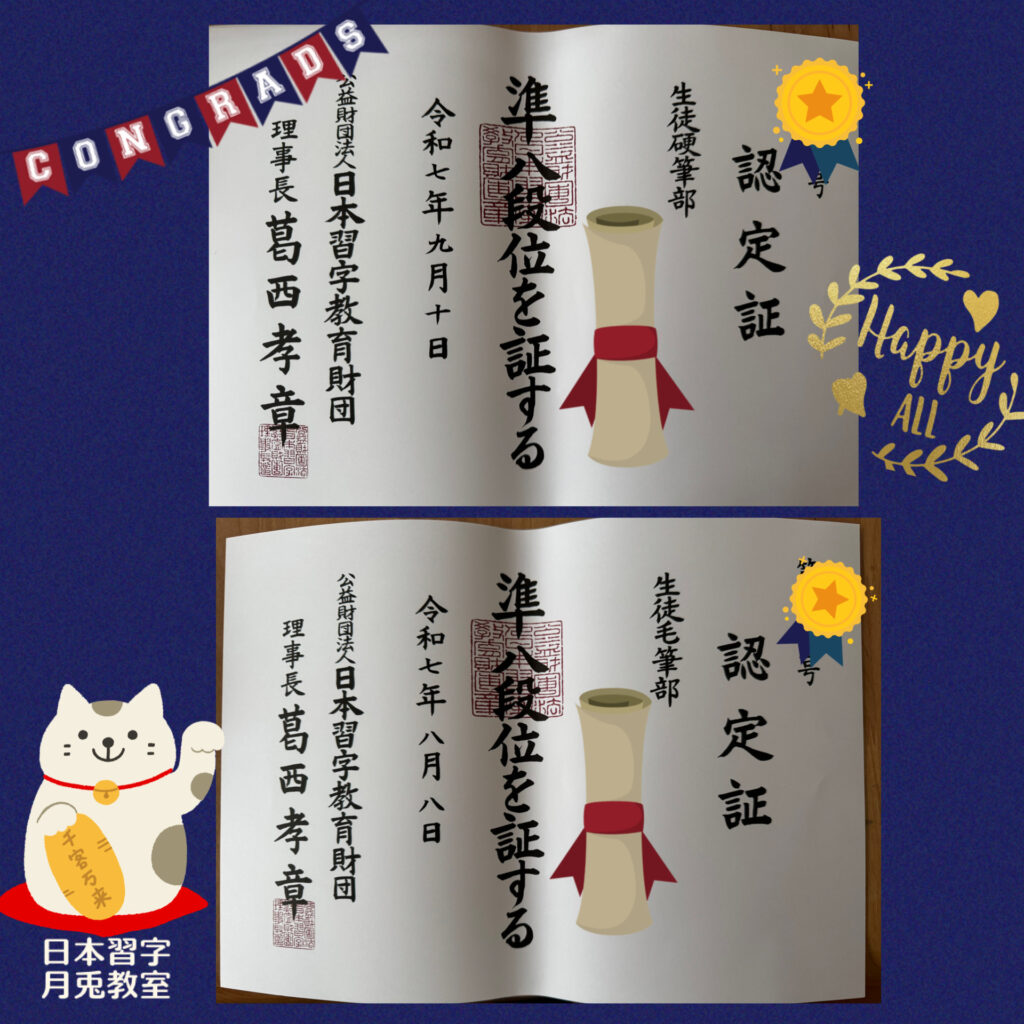 CONGRADS
号
認定証
生徒硬筆部
準八段位を証する
令和七年九月十日
公益財団法人日本習字教育財団
理事長 葛西孝章
Happy
ALL
号
認定証
生徒毛筆部
準八段位を証する
令和七年八月八日
公益財団法人日本習字教育財団
理事長 葛西孝章
千客万来
日本習字
月兎教室